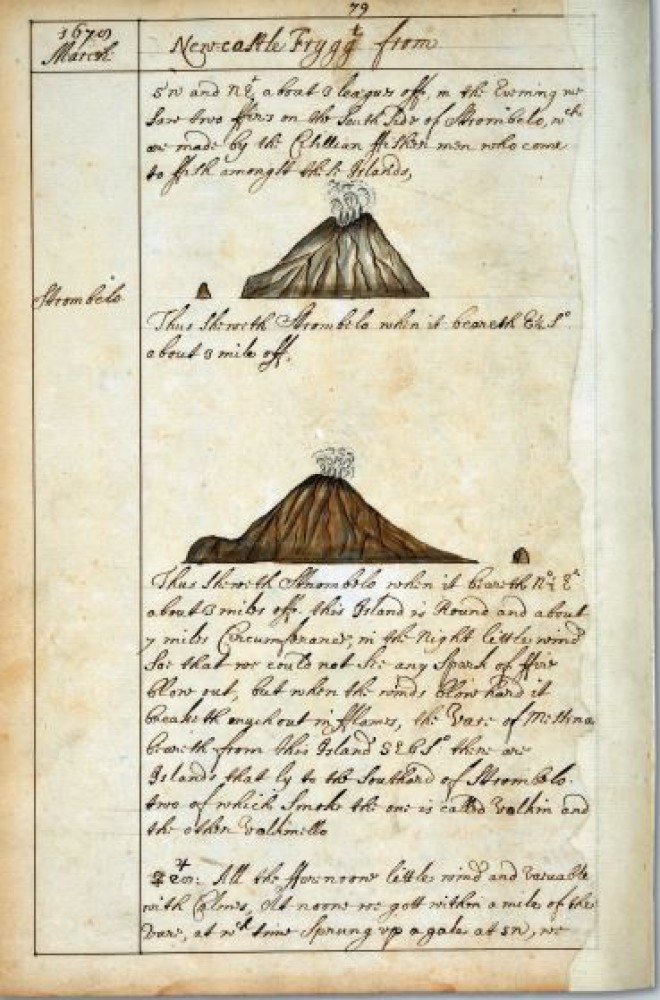 79
1679
March
Newcastle Frygg.t from
sw and N.E. about 3 leagues off, in the Evening we
saw two ffires on the South Side of Strombelo, w.ch
are made by the Cisillian ffisher men who come
to ffish amongst these Islands,
Strombelo
Thus sheweth Strombelo when it beareth E½ S.o
about 3 mile off,
Thus sheweth Strombelo when it beareth N.o E.t
about 3 miles off. this Island is Round and about
7 miles Circumferance, in the Night little wind
soe that we could not see any Spark of ffire
blow out, but when the winds blow hard it
breaketh out in fflames, the Vare of Messina
beareth from this Island SEbS.o there are
Islands that ly to the Southard of Strombelo
two of which Smoke the one is called Valkin and
the other Valkinello
All the fforenoone little wind and Variable
with Calmes, At noone we gott within a mile of the
Vare, at w.ch time Sprung vp a gale att sw, we